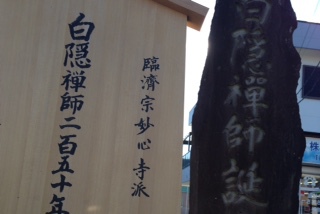 臨濟宗妙心寺派
白隠禅師二百五十年
白隠禅師誕
株